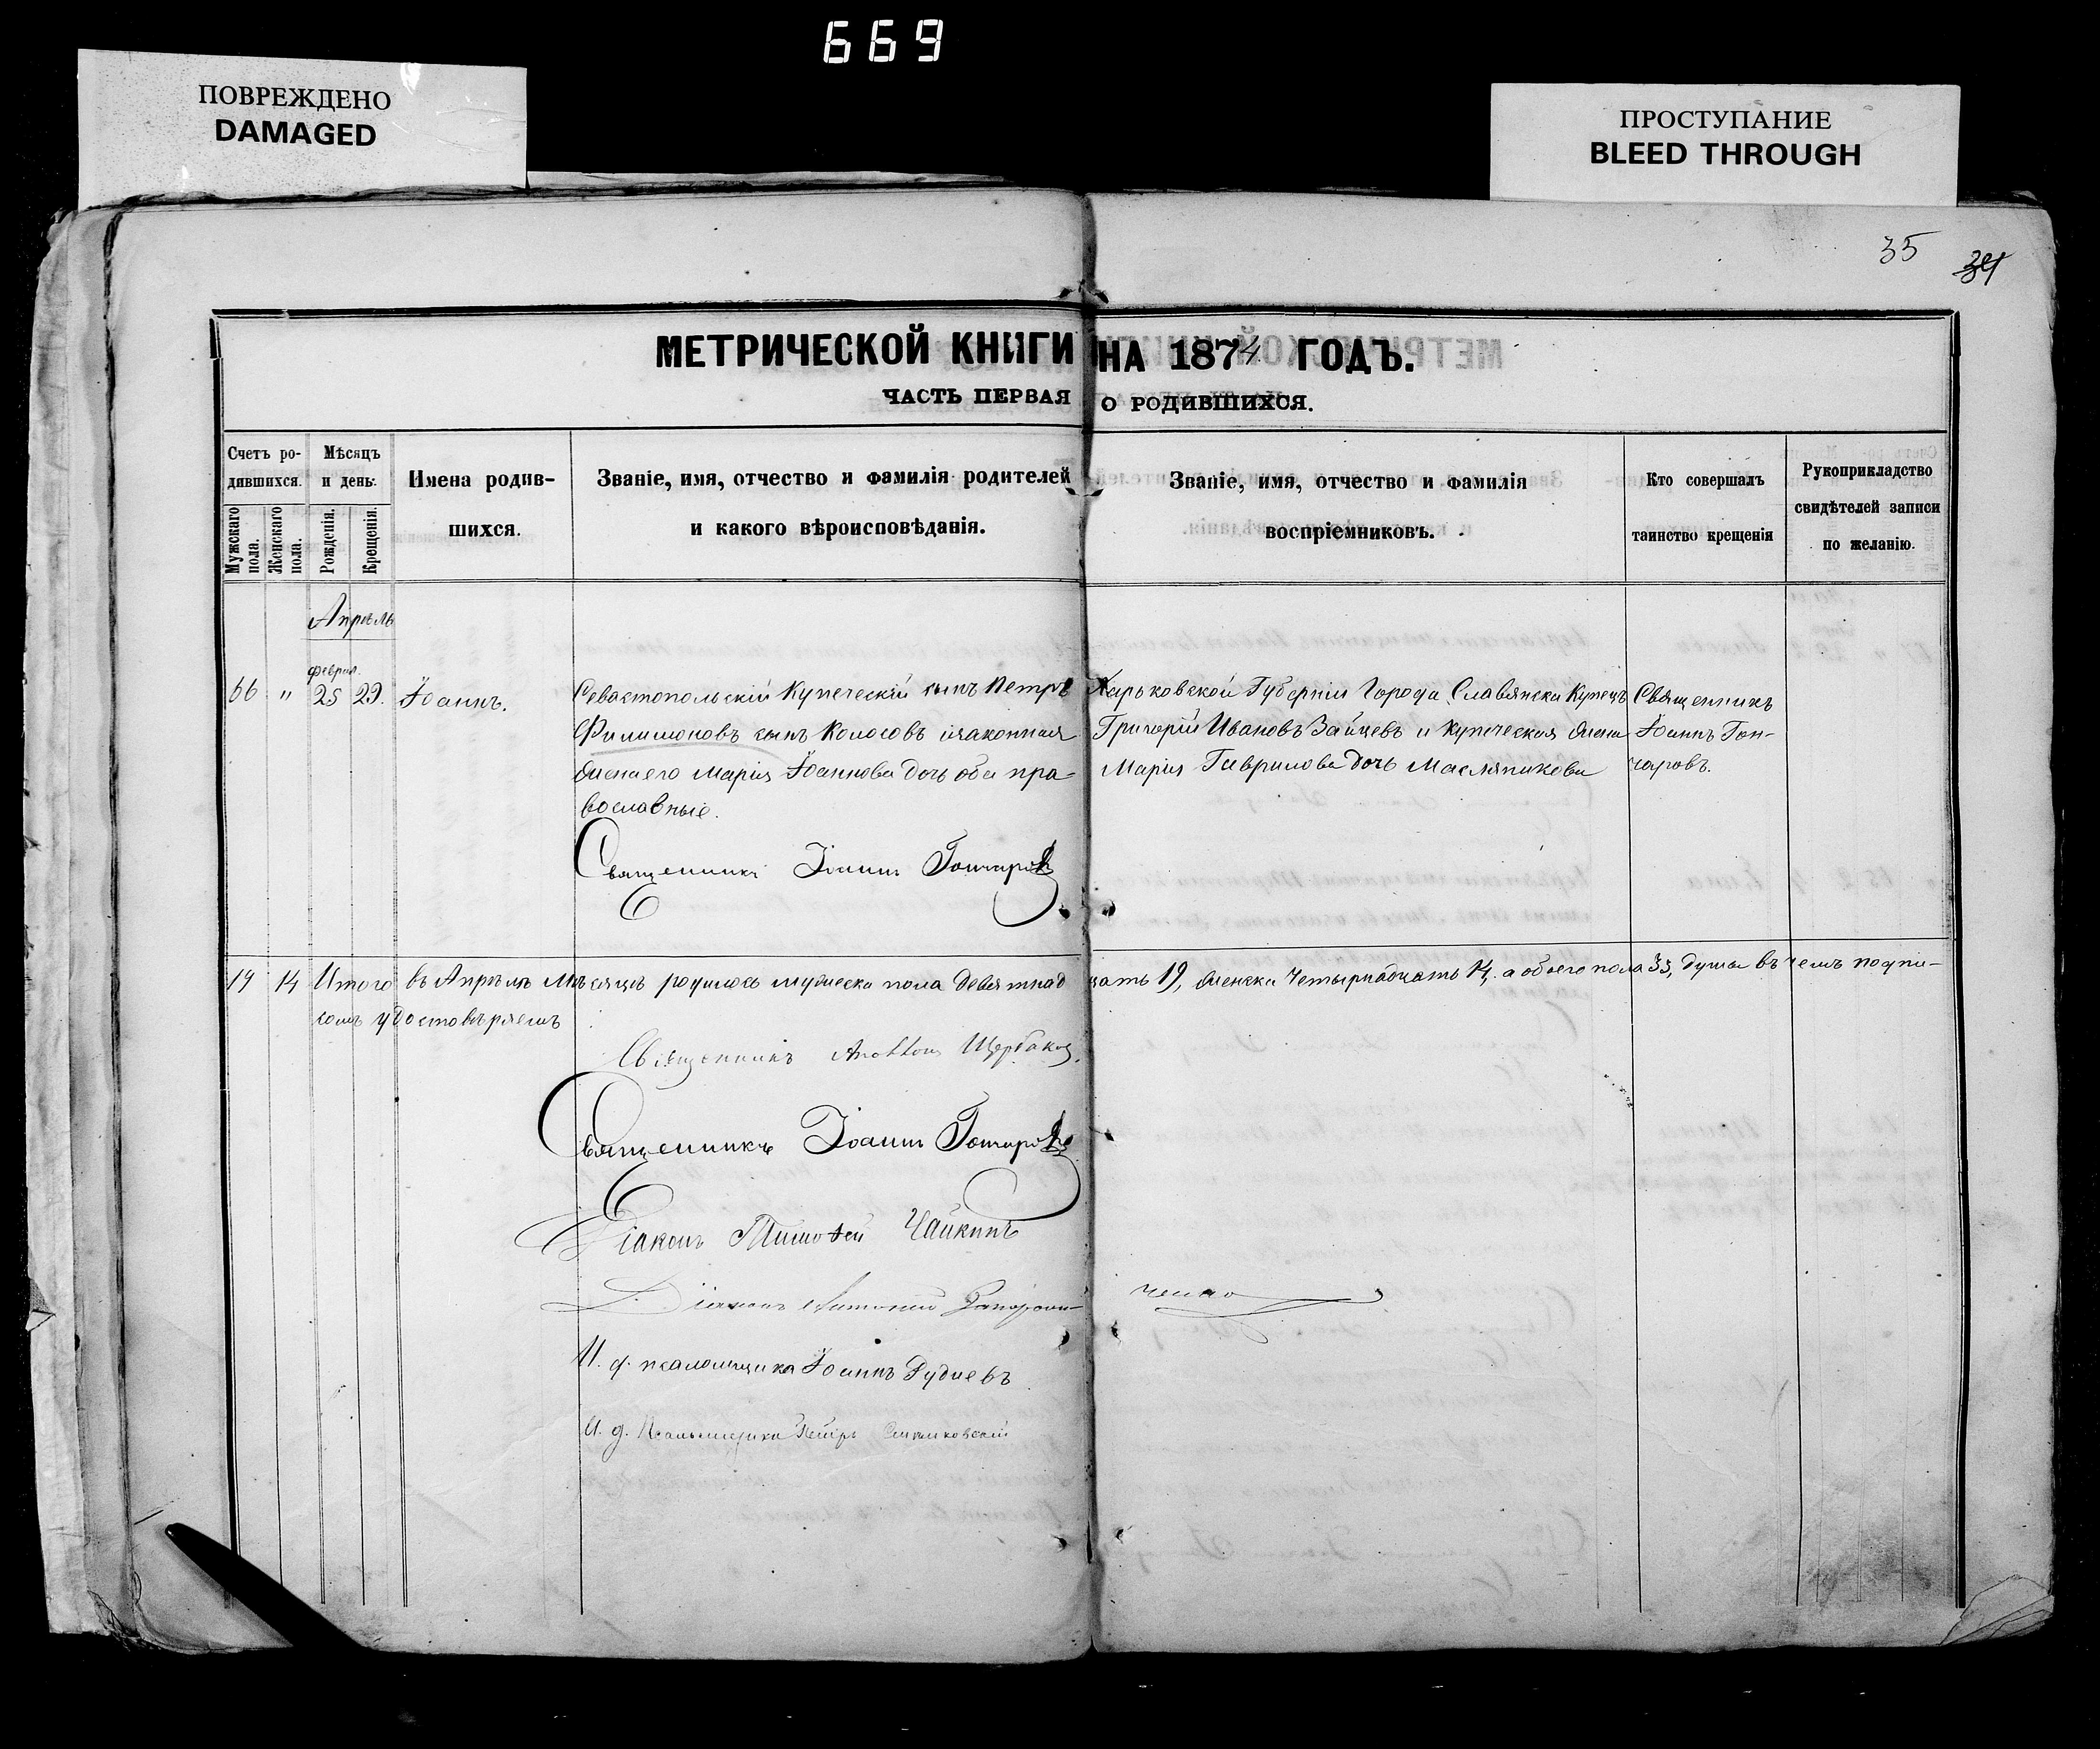 669
ПОВРЕЖДЕНО
DAMAGED
ПРОСТУПАНИЕ
BLEED THROUGH
35
34
МЕТРИЧЕСКОЙ КНИГИ НА 1874 ГОДЪ.
ЧАСТЬ ПЕРВАЯ О РОДИВШИХСЯ.
Счетъ ро-
дившихся.
Мужскаго пола.
Женскаго пола.
Мѣсяцъ
и день.
Рожденія.
Крещенія.
Имена родив-
шихся.
Званіе, имя, отчество и фамилія родителей
и какого вѣроисповѣданія.
Званіе, имя, отчество и фамилія
воспріемниковъ.
Кто совершалъ
таинство крещенія
Рукоприкладство
свидѣтелей записи
по желанію.
Апрѣль
феврал.
66 " 25 29. Іоаннъ.
Севастопольскій Купеческій сынъ Петръ
Филимоновъ сынъ Колосовъ и законная
жена его Марія Іоаннова дочь оба пра-
вославные.
Харьковской Губерніи Города Славянска Купецъ
Григорій Ивановъ Зайцевъ и купеческая жена
Марія Гаврилова дочь Масляникова
Священникъ
Іоаннъ Гон-
чаровъ.
Священникъ Іоаннъ Гончаровъ
19 14 Итого въ Апрѣлѣ Мѣсяцѣ родилось мужеска пола девятнад цать 19, женска Четырнадцать 14, а обоего пола 33, душы въ чемъ подпи-
комъ удостовѣряемъ
Священникъ Щербаков
Священникъ Іоаннъ Гончаровъ
Діаконъ Тимофей Чайкинъ
Діаконъ Антоній Григорови-
ченко
И. д. псаломщика Іоаннъ Рудневъ
И. д. Псаломщика Петръ